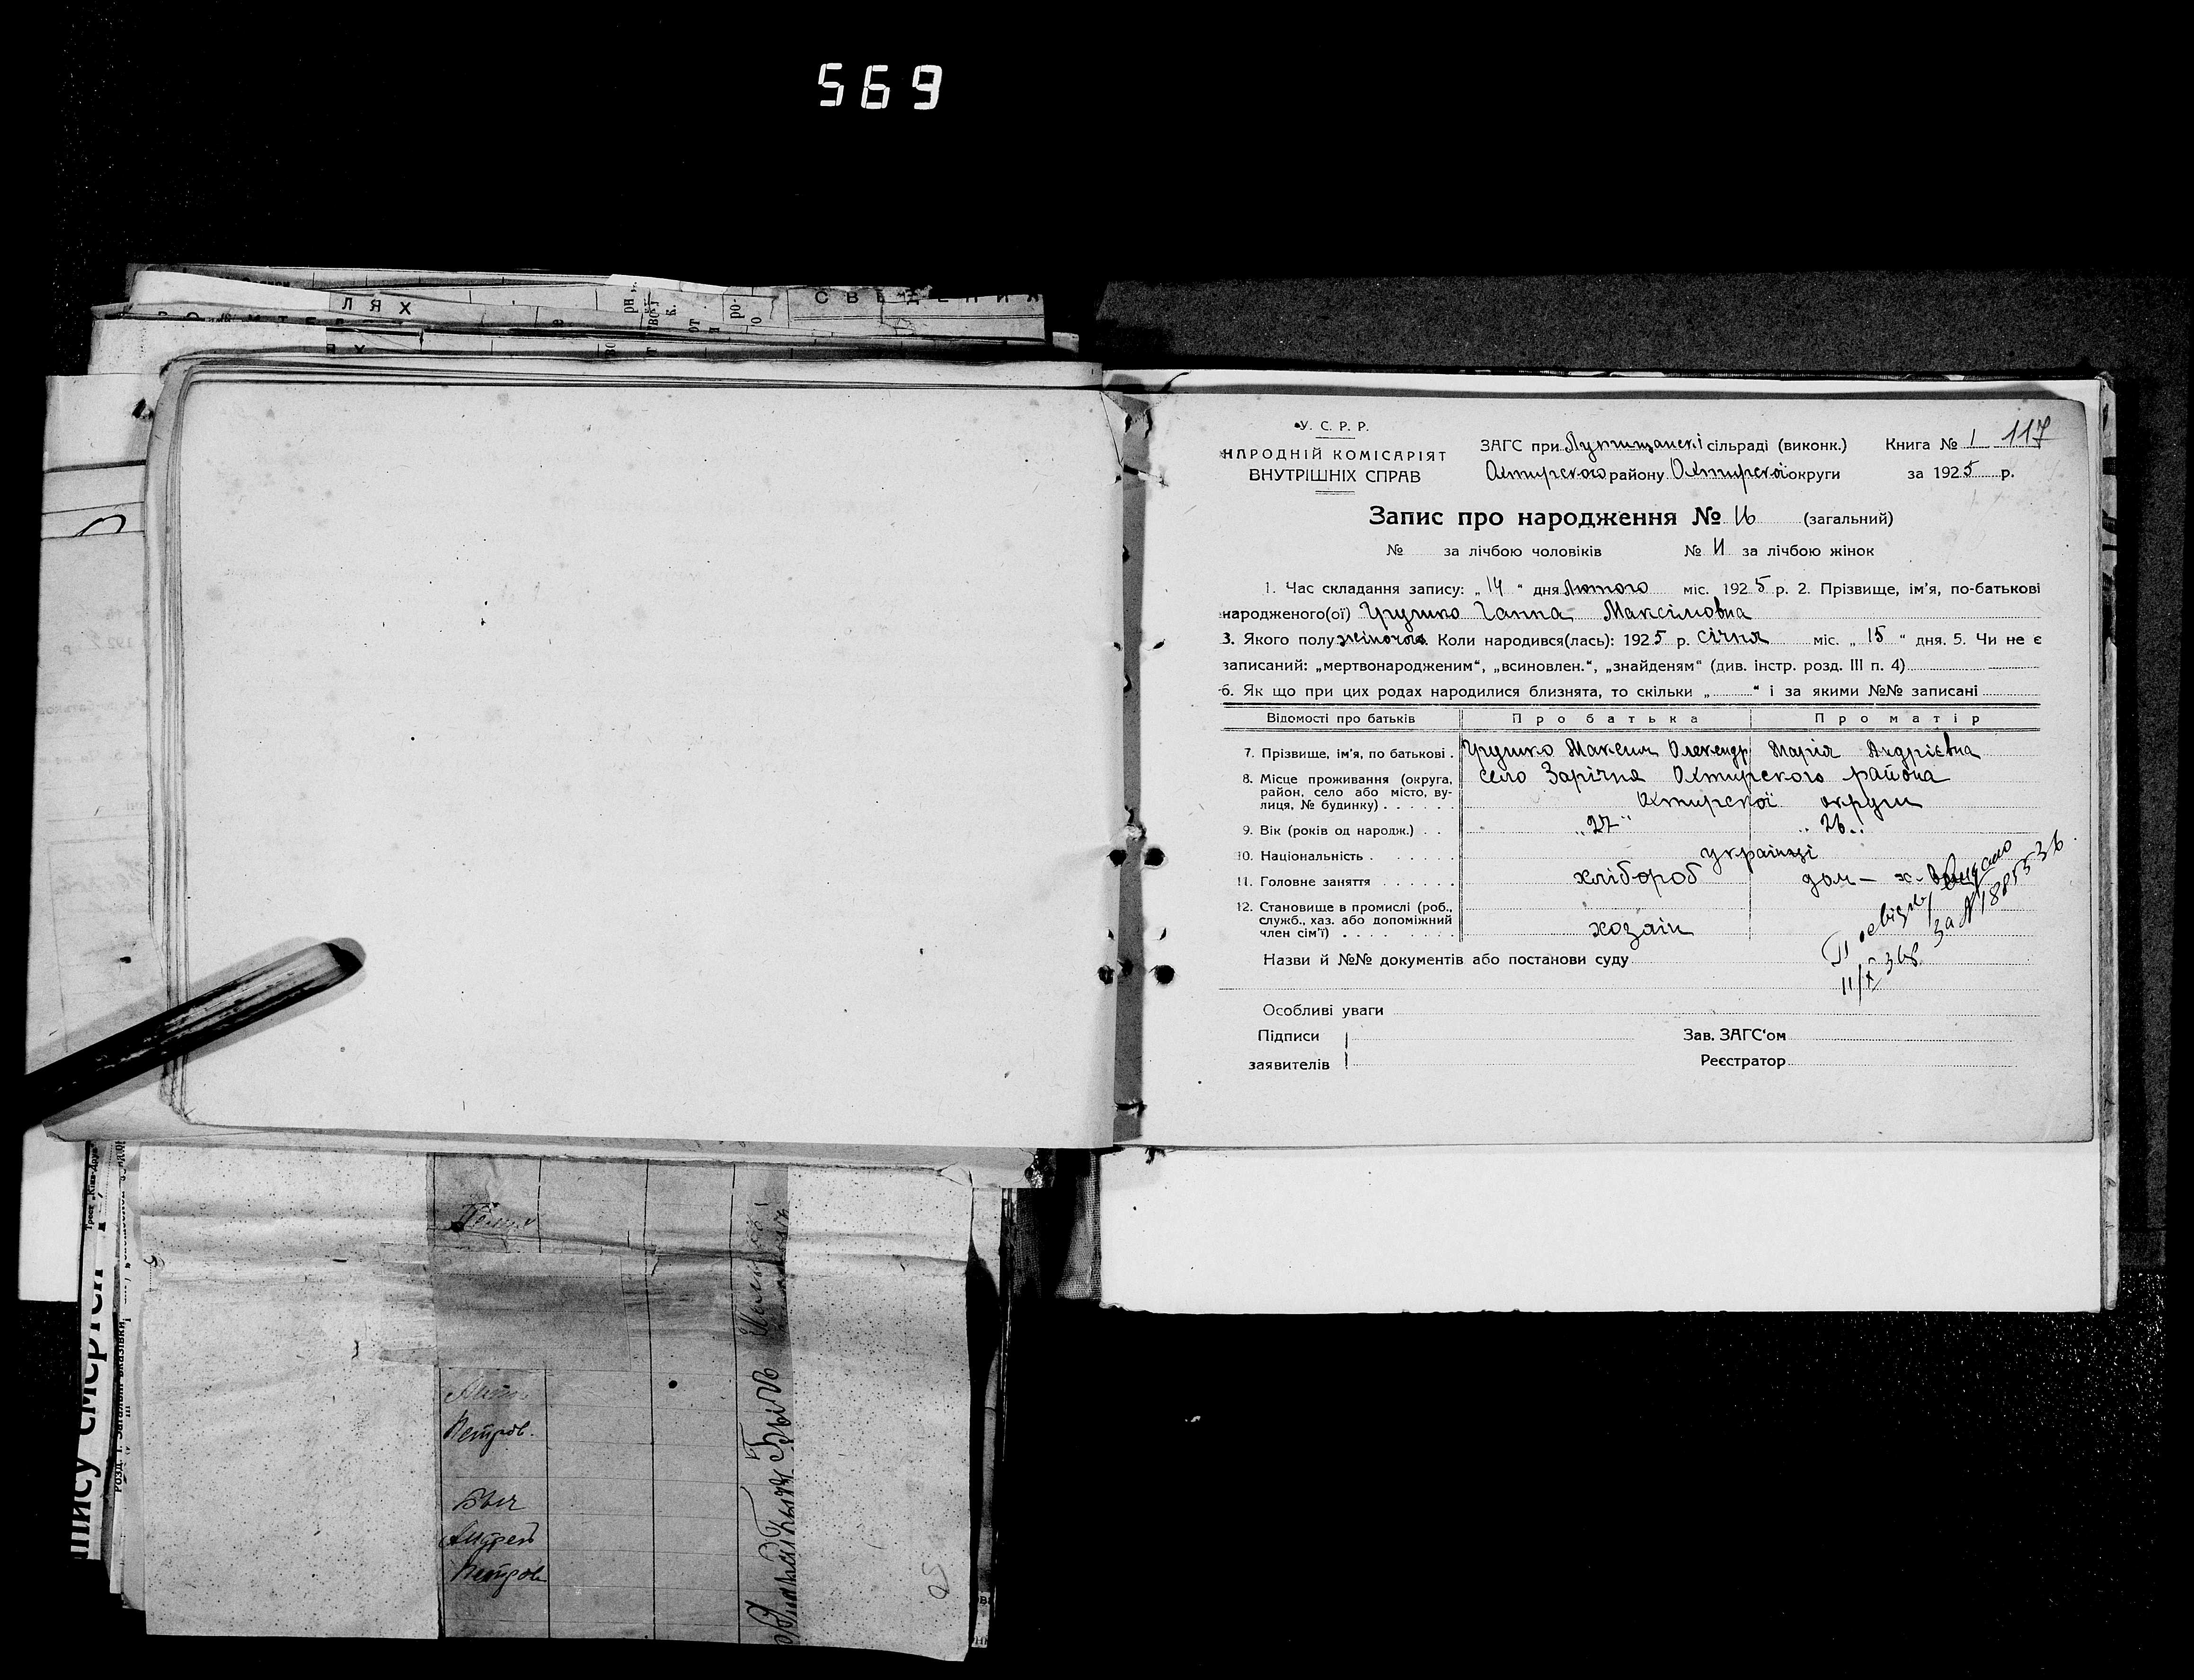 569
ЛЯХ
СВЕДЕНИЯ
У. С. Р. Р.
НАРОДНІЙ КОМІСАРІЯТ
ВНУТРІШНІХ СПРАВ
ЗАГС при сільраді (виконк.) Книга № 1 117
Охтирского району Охтирскої округи за 1925 р.
Запис про народження № 16 (загальний)
№ за лічбою чоловіків № 11 за лічбою жінок
1. Час складання запису: „ 14 “ дня Лютого міс. 1925 р. 2. Прізвище, ім'я, по-батькові
народженого(ої) Ганна Максімовна
3. Якого полу жіночого Коли народився(лась): 1925 р. січня міс. „ 15 “ дня. 5. Чи не є
записаний: „мертвонародженим“, „всиновлен.“, „знайденям“ (див. інстр. розд. III п. 4)
6. Як що при цих родах народилися близнята, то скільки „ “ і за якими №№ записані
Відомості про батьків Про батька Про матір
7. Прізвище, ім'я, по батькові . Максим Олександр Марія Андрієвна
8. Місце проживання (округа, район, село або місто, ву-лиця, № будинку) . . . . . . село Зарічня Охтирского района
Охтирскої округи
9. Вік (років од народж.) . . „27“ „26„
10. Національність . . . . . . українці
11. Головне заняття . . . . . . хлібороб дом - х-
12. Становище в промислі (роб., служб., хаз. або допоміжний член сім'ї) . . . . . . . . . хозаін
за № 1885536
11/X 36г.
Назви й №№ документів або постанови суду
Особливі уваги
Підписи
заявителів
Зав. ЗАГС'ом
Реєстратор
Петров.
Андрей
Петров